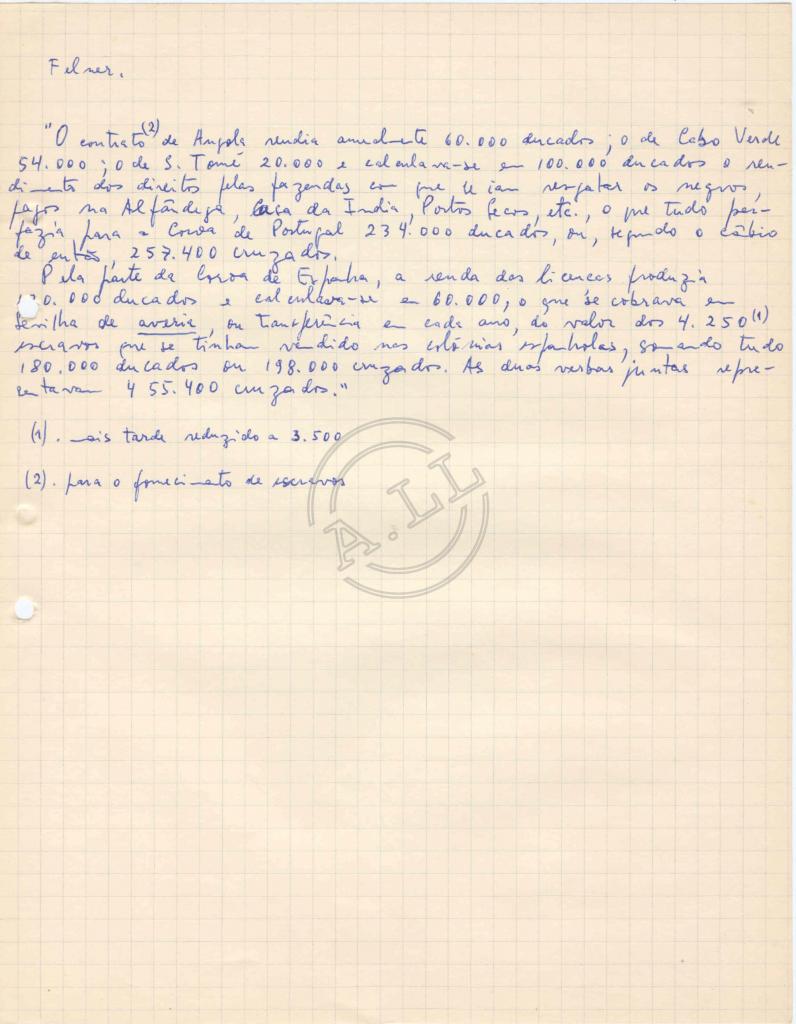 Felner.
"O contrato(2) de Angola rendia anualmente 60.000 ducados; o de Cabo Verde
54.000; o de S. Tomé 20.000 e calculava-se em 100.000 ducados o ren-
dimento dos direitos pelas fazendas com que se iam resgatar os negros,
pagos na Alfândega, Casa da India, Portos Secos, etc., o que tudo per-
fazia para a Coroa de Portugal 234.000 ducados, ou, segundo o câmbio
de então, 257.400 cruzados.
Pela parte da Coroa de Espanha, a renda das licenças produzia
20.000 ducados e calculava-se em 60.000, o que se cobrava em
Sevilha de averia, ou transferência em cada ano, do valor dos 4.250(1)
escravos que se tinham vendido nas colónias espanholas, somando tudo
180.000 ducados ou 198.000 cruzados. As duas verbas juntas repre-
sentavam 455.400 cruzados."
(1). mais tarde reduzido a 3.500
(2). para o fornecimento de escravos
A.LL